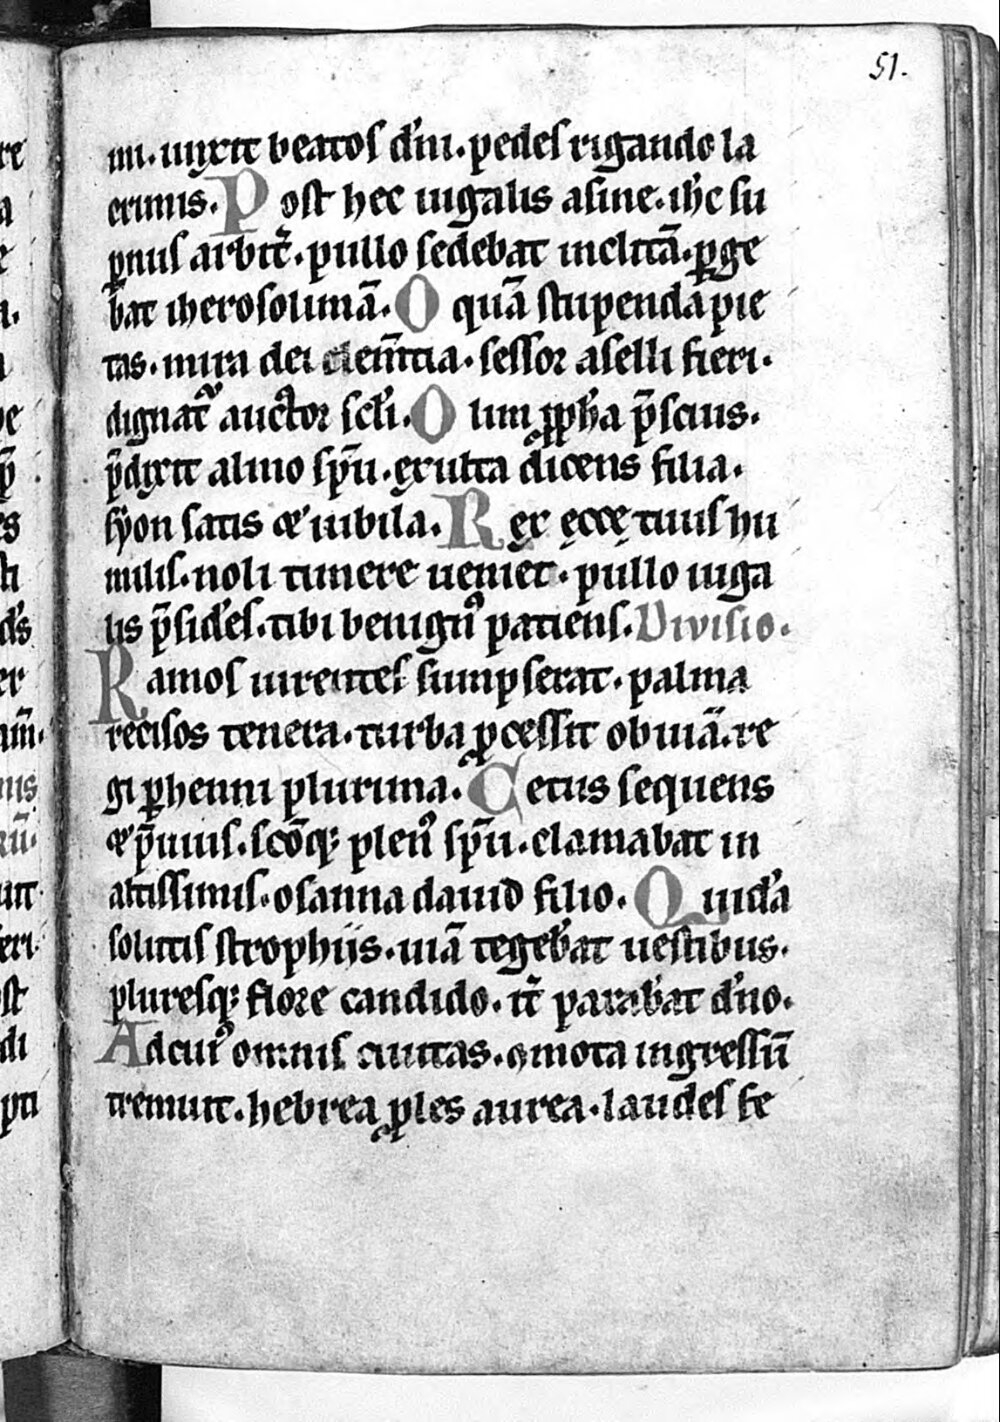 51.
mi. unxit beatos dñi. pedes rigando la
crimis. Post hec iugalis asine. ihc su
ꝑnus arbit̄. pullo sedebat inclitā. ꝑge
bat iherosolimā. O quā stupenda pie
tas. mira dei clem̄tia. sessor aselli fieri.
dignatˀ auctor scł̄i. Olim ꝓph̄a p̄scius.
p̄dixit almo sp̄u. exulta dicens filia.
syon satis & iubila. Rex ęcce tuus hu
milis. noli timere ueniet. pullo iuga
lis p̄sidēs. tibi benignꝰ patiens. Divisio.
Ramos uirentes sumpserat. palma
recisos tenera. turba ꝓcessit obuiā. re
gi ꝑhenni plurima. Cetus sequens
& p̄uius. scōqꝫ plenꝰ sp̄u. clamabat in
altissimis. osanna dauid filio. Quidā
solutis strophiis. uiā tegebat uestibus.
pluresqꝫ flore candido. it̄ parabat dño.
Ad cuiꝰ omnis ciuitas. ꝯmota ingressū
tremuit. hebrea ꝓles aurea. laudes fe